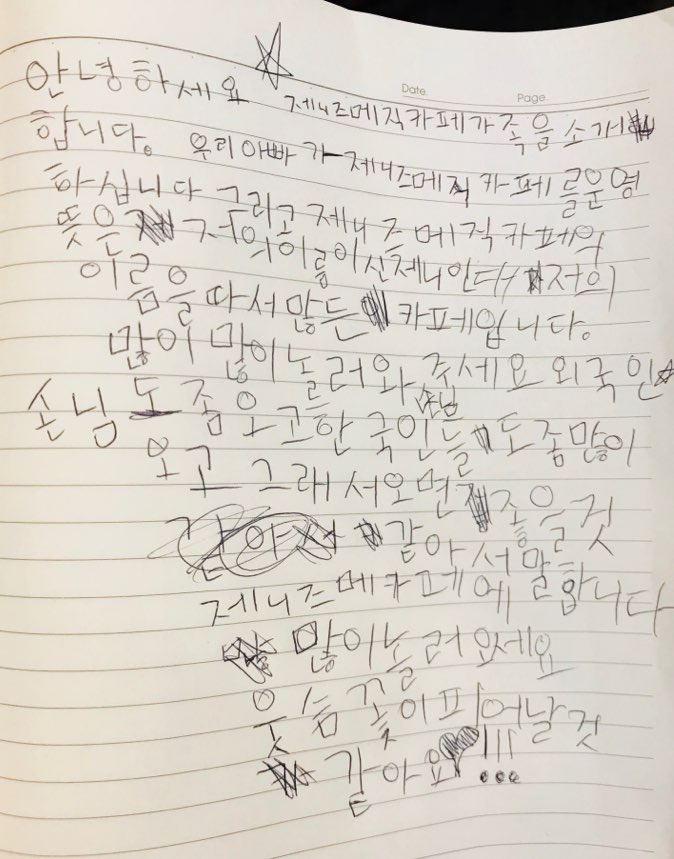 Date. Page.
안녕하세요 제니즈메직카페가족을소개
합니다. 우리아빠가 제니즈메직 카페를운영
하십니다 그리고 제니즈메직카페의
뜻은 저의이름이신제니인다 저의
이름을따서많든 카페입니다.
많이 많이놀러와 주세요 외국인
손님도 좀오고한국인손님들도좀많이
오고 그래서오면 좋을것
같아서말합니다
제니즈메카페에
많이놀러오세요
웃슴꽃이피어날것
같아요!!!